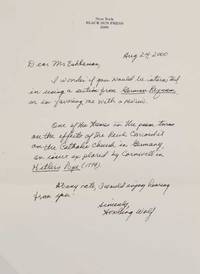 New York
BLACK SUN PRESS
2000
Aug 24 2000
Dear Mr Eshleman,
I wonder if you would be interested
in using a section from German Requiem
or in favoring me with a review.
One of the themes in the poem turns
on the effects of the Reich Concordat
on the Catholic Church in Germany,
an issue explored by Cornwell in
Hitlers Pope (1999).
At any rate, I would enjoy hearing
from you!
Sincerely,
Howling Wolf